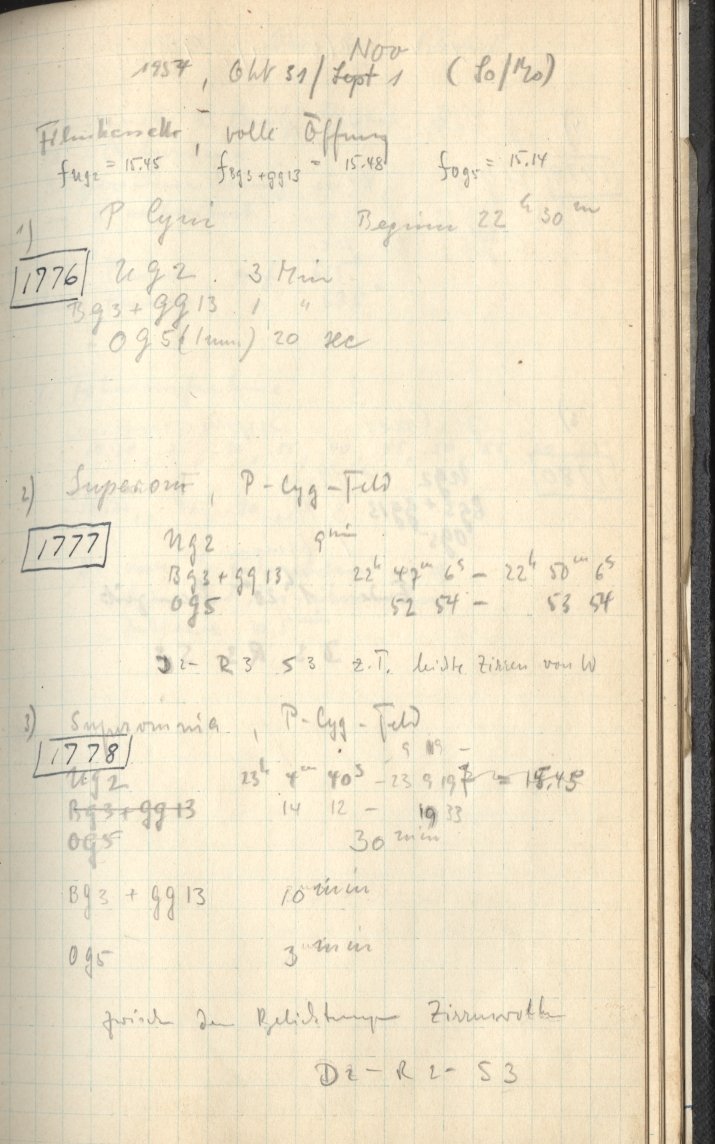 Nov
1954, Okt 31/Sept 1 (So/Mo)
Filmkassette, volle Öffnung
fug2 = 15.45 fBg3+gg13 = 15.48 fog5 = 15.14
1) P Cygni Beginn 22h 30m
1776 Ug2 3 Min
Bg3 + gg13 1 "
Og5 (1mm) 20 sec
2) P-Cyg-Feld
1777 Ug2 9min
Bg3 + gg13 22h 47m 6s – 22h 50m 6s
Og5 52 54 – 53 54
D2 – R3 S3 z.T. leichte Zirren von W
3) P-Cyg-Feld
1778 9 19 –
Ug2 23h 4m 40s – 23 9 19 = 15.45
Bg3 + gg13 14 12 – 19 33
Og5 30 min
Bg3 + gg13 10 min
Og5 3 min
zwischen den Belichtungen Zirruswolken
D2 – R2 – S3